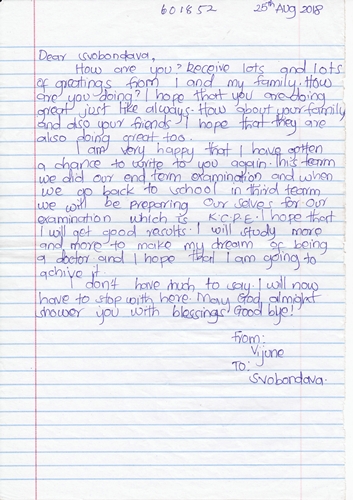 601852 25th Aug 2018
Dear svobondava,
How are you? Receive lots and lots
of greetings from I and my family. How
are you doing? I hope that you are doing
great just like always. How about your family
and also your friends I hope that they are
also doing great too.
I am very happy that I have gotten
a chance to write to you again. This team
we did our end term examination and when
we go back to school in third team
we will be preparing our selves for our
examination which is K.C.P.E. I hope that
I will get good results. I will study more
and more to make my dream of being
a doctor and I hope that I am going to
achive it.
I don't have much to say. I will now
have to stop with here. May God almight
shower you with blessings. Good bye!
From:
Vijune
To:
Svobondava.